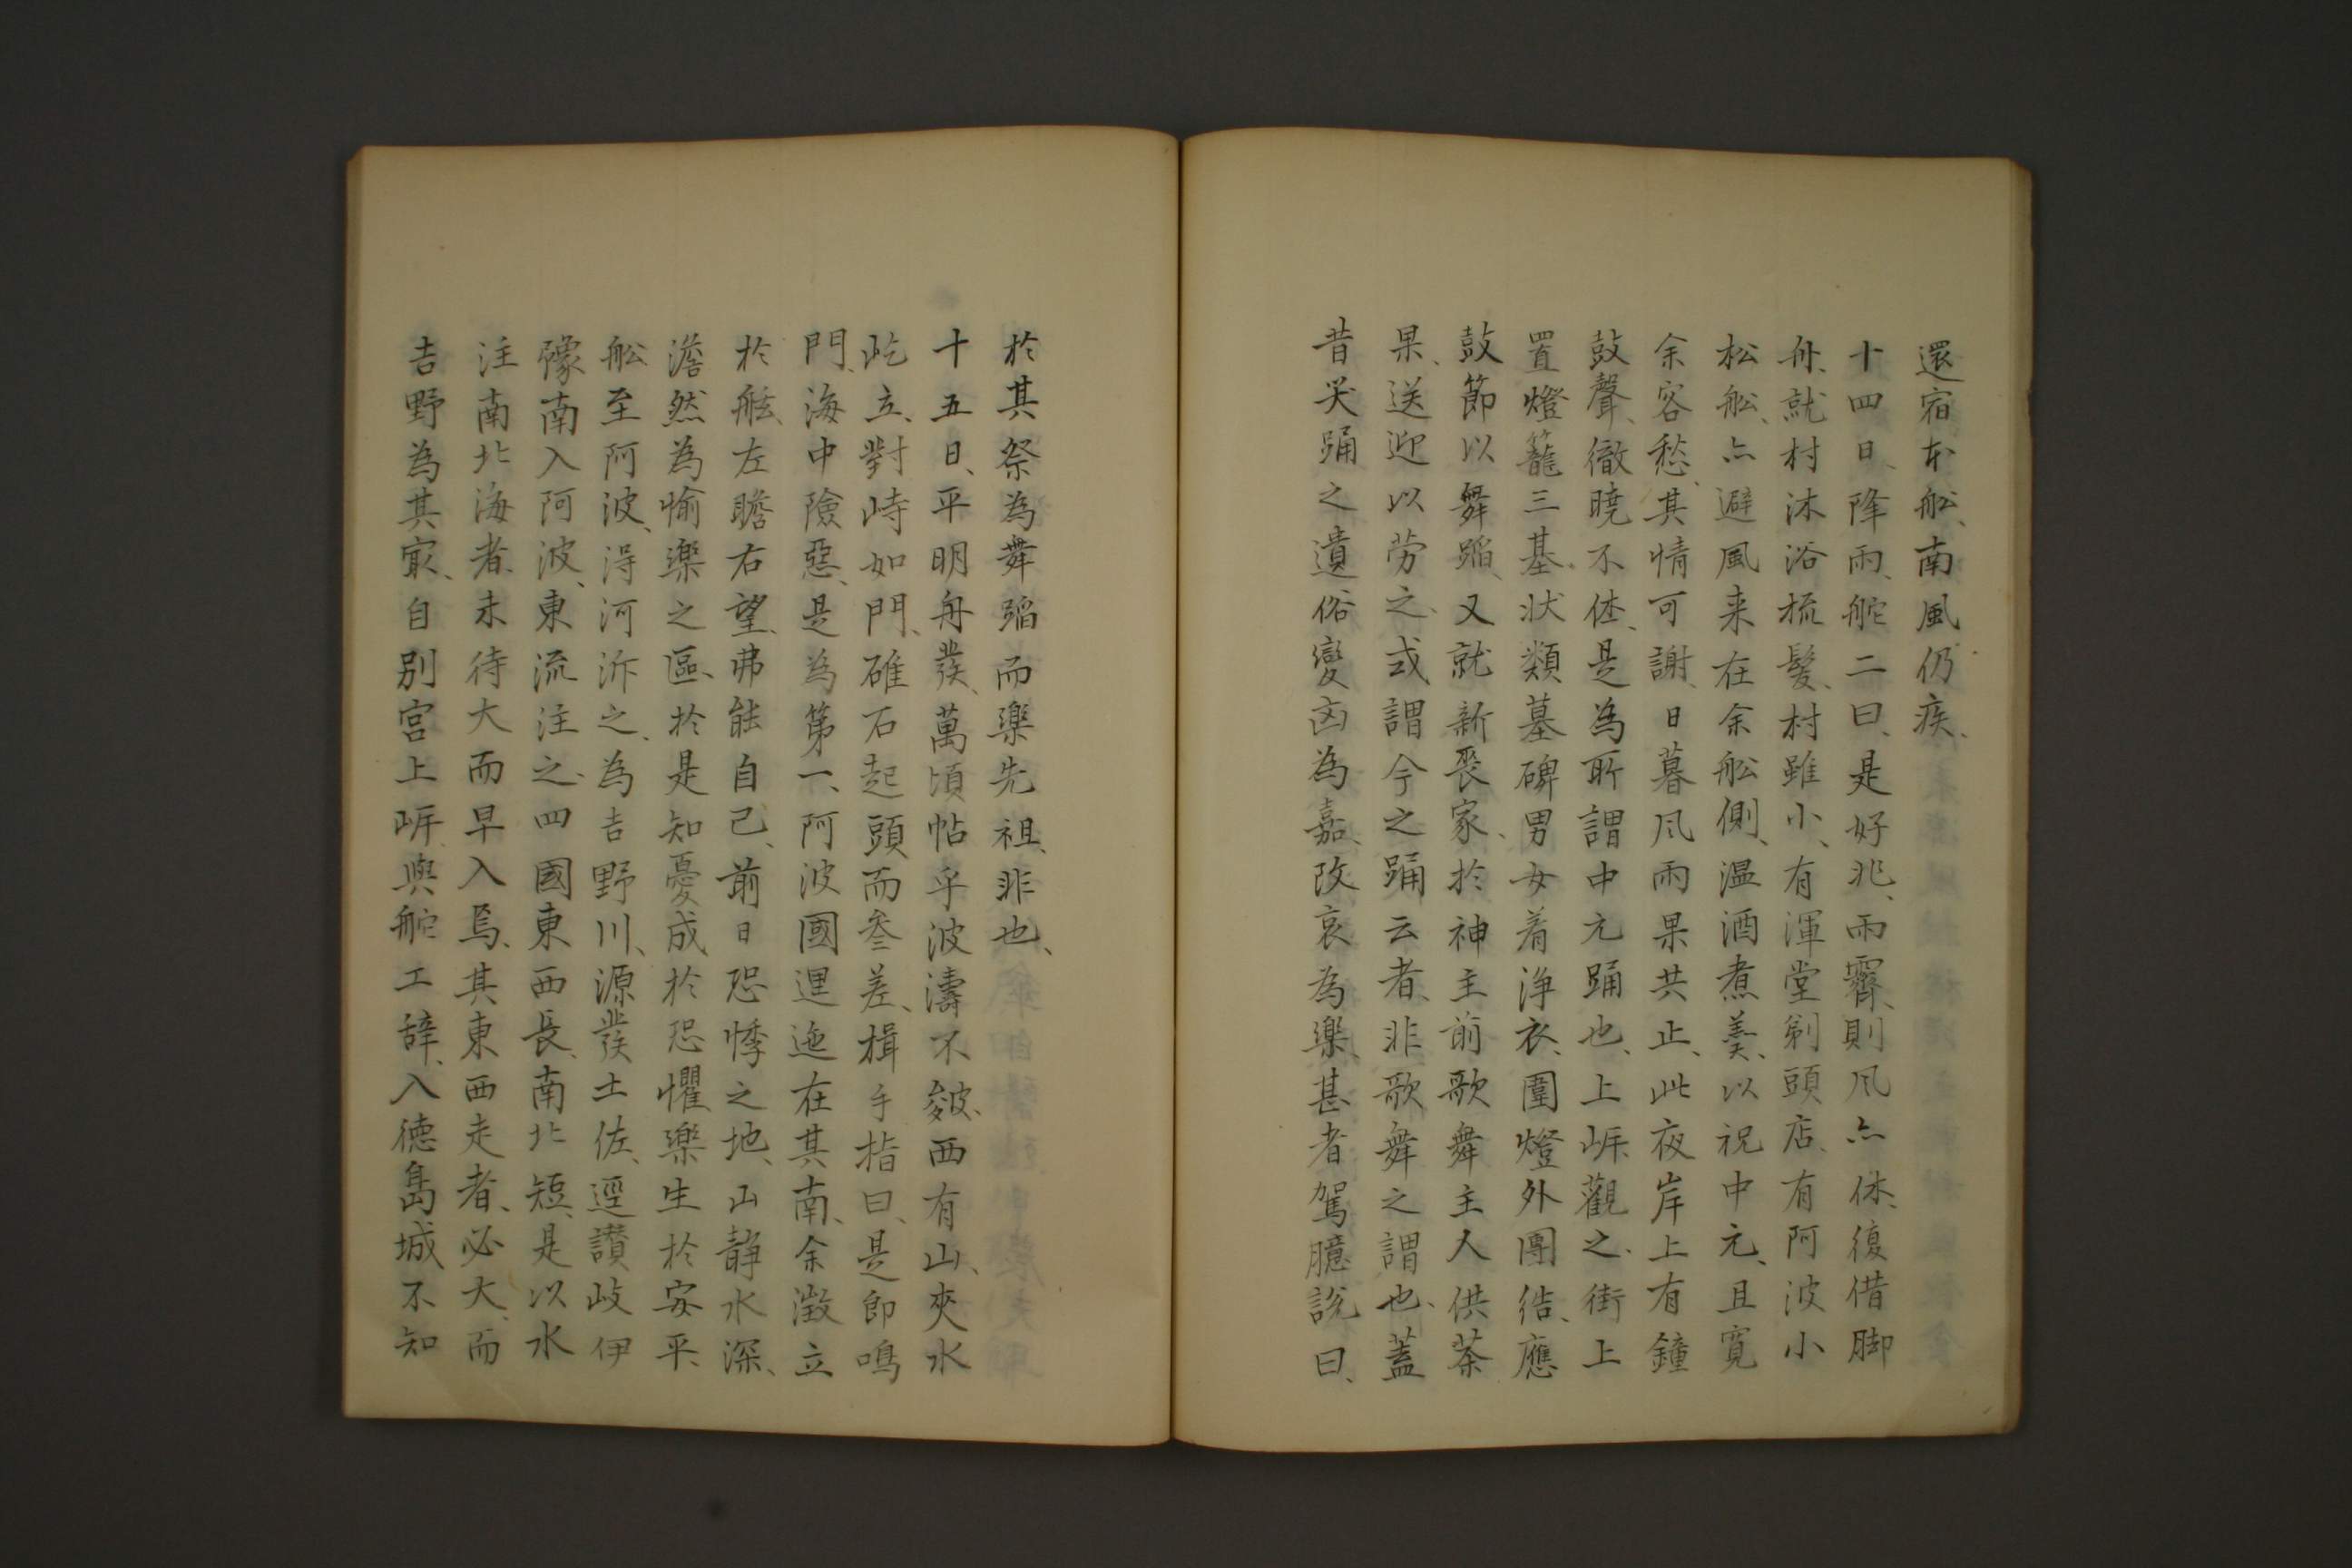 還宿本舩、南風仍疾、
十四日、降雨、舵二曰、是好兆、雨霽、則風亦休、復借脚
舟、就村沐浴梳髮、村雖小、有渾堂剃頭店、有阿波小
松舩、亦避風来在余舩側、温酒煮羮、以祝中元、且寬
余客愁、其情可謝、日暮风雨果共止、此夜岸上有鐘
鼓聲、徹曉不休、是為所謂中元踊也、上岸觀之、街上
置燈籠三基、状類墓碑男女着浄衣、圍燈外團結、應
鼓節以舞蹈、又就新喪家、於神主前歌舞主人供茶
果、送迎以勞之、或謂今之踊云者、非歌舞之謂也、蓋
昔哭踊之遺俗變凶為嘉、改哀為樂、甚者駕臆說曰、
於其祭為舞蹈而樂先祖、非也、
十五日、平明舟發、萬頃帖乎波濤不皴、西有山、夾水
屹立、對峙如門、碓石起頭而叁差、楫手指曰、是即鳴
門、海中險惡、是為第一、阿波國逕迤在其南、余徴立
於舷、左瞻右望、弗能自已、前日恐悸之地、山靜水深、
澹然為愉樂之區、於是知憂成於恐懼、樂生於安平、
舩至阿波、得河泝之、為吉野川、源發土佐、逕讃岐伊
豫南入阿波、東流注之、四國東西長、南北短、是以水
注南北海者、未待大而早入焉、其東西走者、必大、而
吉野為其冣、自别宮上岸、與舵工辞、入徳島城不知